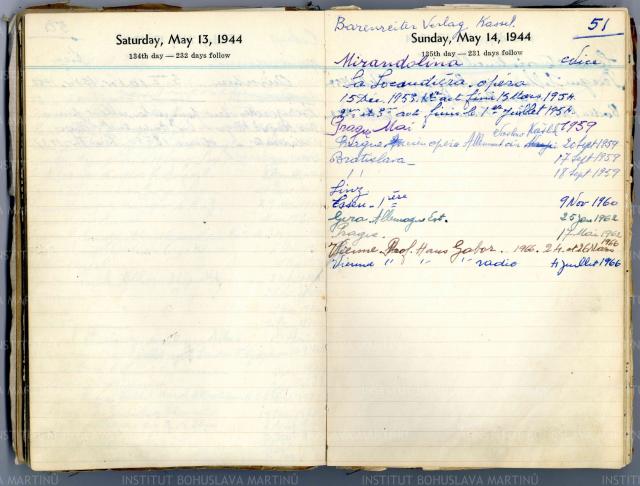 Saturday, May 13, 1944
134th day — 232 days follow
Bärenreiter Verlag, Kassel.
51
Sunday, May 14, 1944
135th day — 231 days follow
Mirandolina
La Locandiera. opéra
15 Dec. 1953. 1er act finis 13 Mars 1954.
2me et 3me act finis le 1er juillet 1954.
Prague Mai 1959
Prague opéra 20 Sept 1959
Bratislava 17 Sept 1959
" 18 Sept 1959
Linz
Essen - 1ère 9 Nov 1960
Gera Allemagne Est. 25 Jan 1962
Prague. 17 Mai 1962
Vienne Prof. Hans Gabor. 1966. 24 et 26 Mars 1966
Vienne " " " radio 4 juillet 1966
INSTITUT BOHUSLAVA MARTINŮ